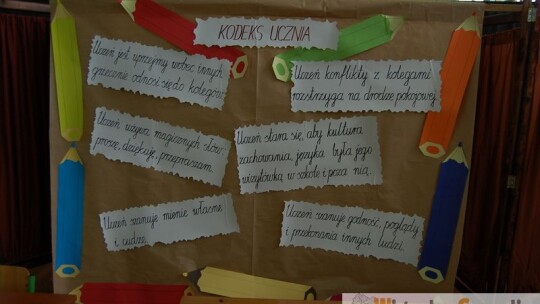 KODEKS UCZNIA
Uczeń jest uprzejmy wobec innych,
grzecznie odnosi się do kolegów.
Uczeń konflikty z kolegami
rozstrzyga na drodze pokojowej.
Uczeń używa magicznych słów:
proszę, dziękuję, przepraszam.
Uczeń stara się, aby kultura
zachowania, języka była jego
wizytówką w szkole i poza nią.
Uczeń szanuje mienie własne
i cudze.
Uczeń szanuje godność, poglądy
i przekonania innych ludzi.